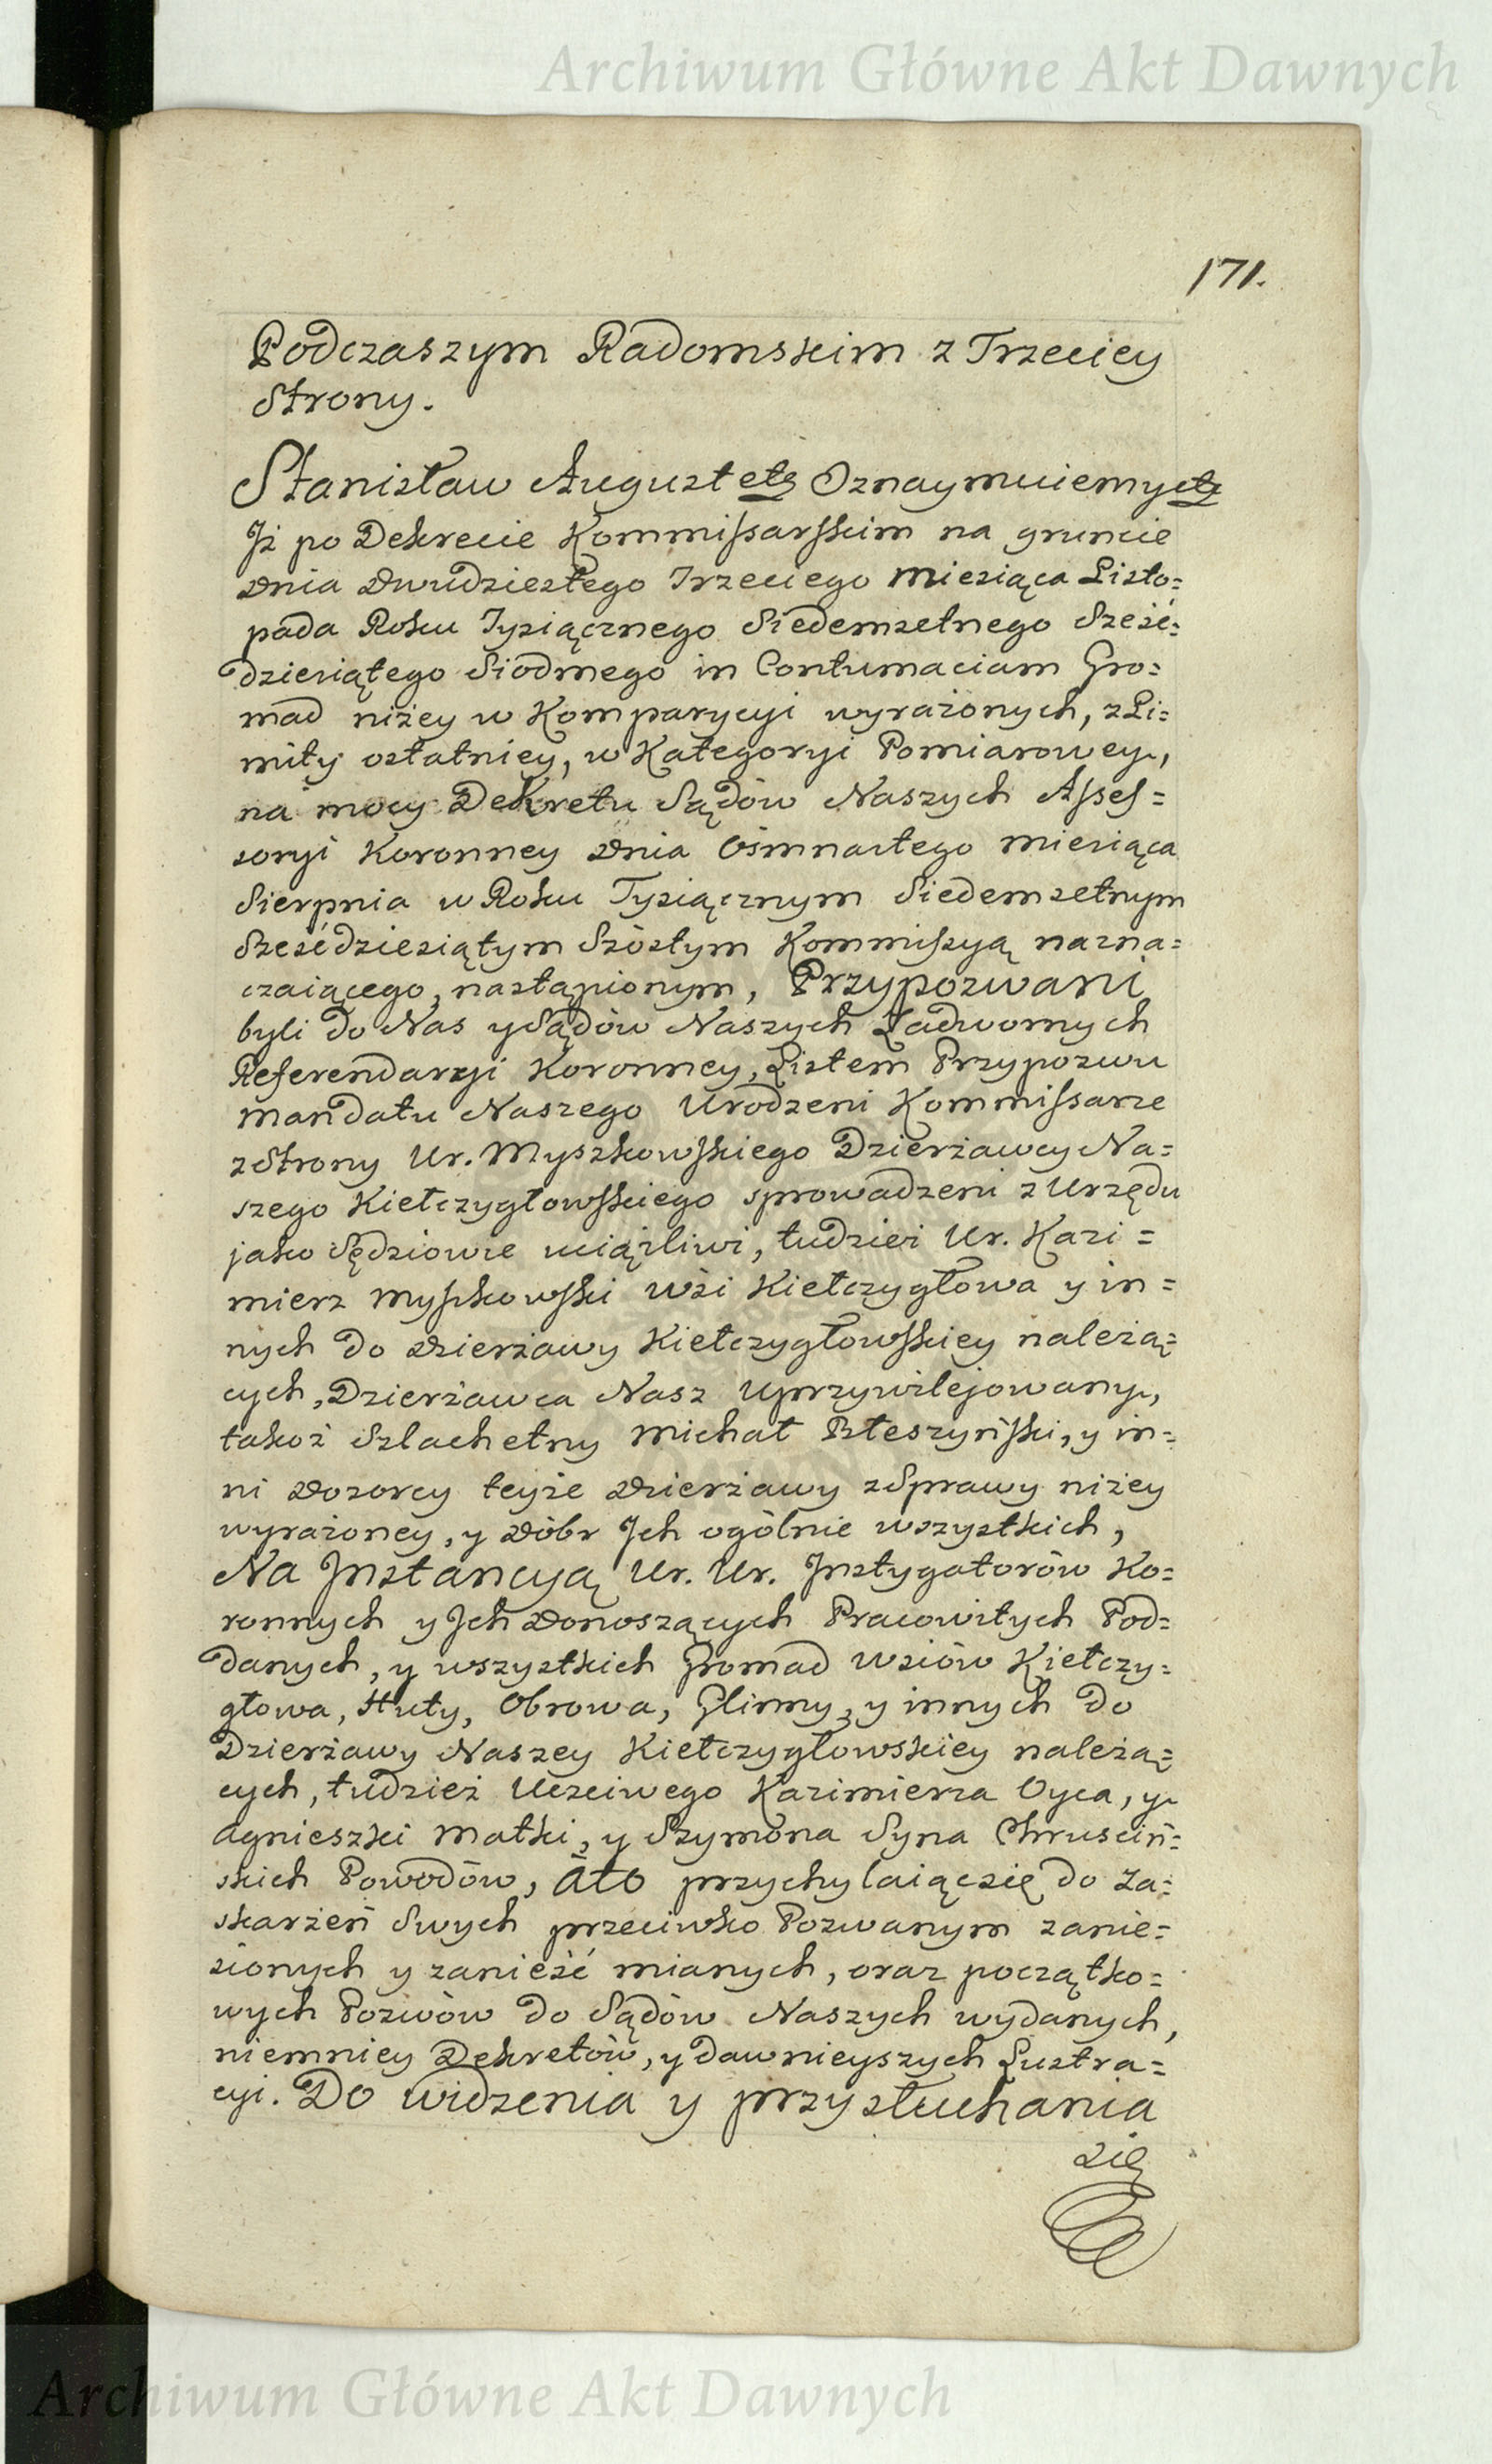 Archiwum Główne Akt Dawnych
171.
Podczaszym Radomskim z Trzeciey
Strony.
Stanisław August etc Oznaymuiemy etc
Jż po Dekrecie Kommissarskim na gruncie
Dnia Dwudziestego Trzeciego Miesiąca Listo=
pada Roku Tysiącznego Siedemsetnego Sześć=
dziesiątego Siodmego in Contumaciam Gro=
mad niżey w Komparycyi wyrażonych, z Li=
mity ostatniey, w Kategoryi Pomiarowey,
na mocy Dekretu Sądów Naszych Asses=
soryi Koronney Dnia Osmnastego miesiąca
Sierpnia w Roku Tysiącznym Siedemsetnym
Sześćdziesiątym Szóstym Kommissyą nazna=
czaiącego, nastąpionym, Przypozwani
byli do Nas y Sądów Naszych Zadwornych
Referendaryi Koronney, Listem Przypozwu
Mandatu Naszego Urodzeni Kommissarze
z Strony Ur. Myszkowskiego Dzierżawcy Na=
szego Kiełczygłowskiego sprowadzeni z Urzędu
jako Sędziowie uciążliwi, tudzież Ur. Kazi=
mierz Myszkowski Wsi Kiełczygłowa y in=
nych do Dzierżawy Kiełczygłowskiey należą=
cych, Dzierżawca Nasz Uprzywilejowany,
takoż Szlachetny Michał Płeszyński, y in=
ni Dozorcy teyże Dzierżawy z Sprawy niżey
wyrażoney, y Dóbr Jch ogólnie wszystkich,
Na Jnstancyą Ur. Ur. Jnstygatorów Ko=
ronnych y Jch Donoszących Pracowitych Pod=
danych, y wszystkich Gromad Wsiów Kiełczy=
głowa, Huty, Obrowa, Glinny, y innych do
Dzierżawy Naszey Kiełczygłowskiey należą=
cych, tudzież Uczciwego Kazimierza Oyca, y
Agnieszki Matki, y Szymona Syna Chrusciń=
skich Powodów, Ato przychylaiąc się do Za=
skarżeń Swych przeciwko Pozwanym zanie=
sionych y zanieść mianych, oraz początko=
wych Pozwów do Sądów Naszych wydanych,
niemniey Dekretów, y dawnieyszych Lustra=
cyi. Do widzenia y przysłuchania
się
Archiwum Główne Akt Dawnych